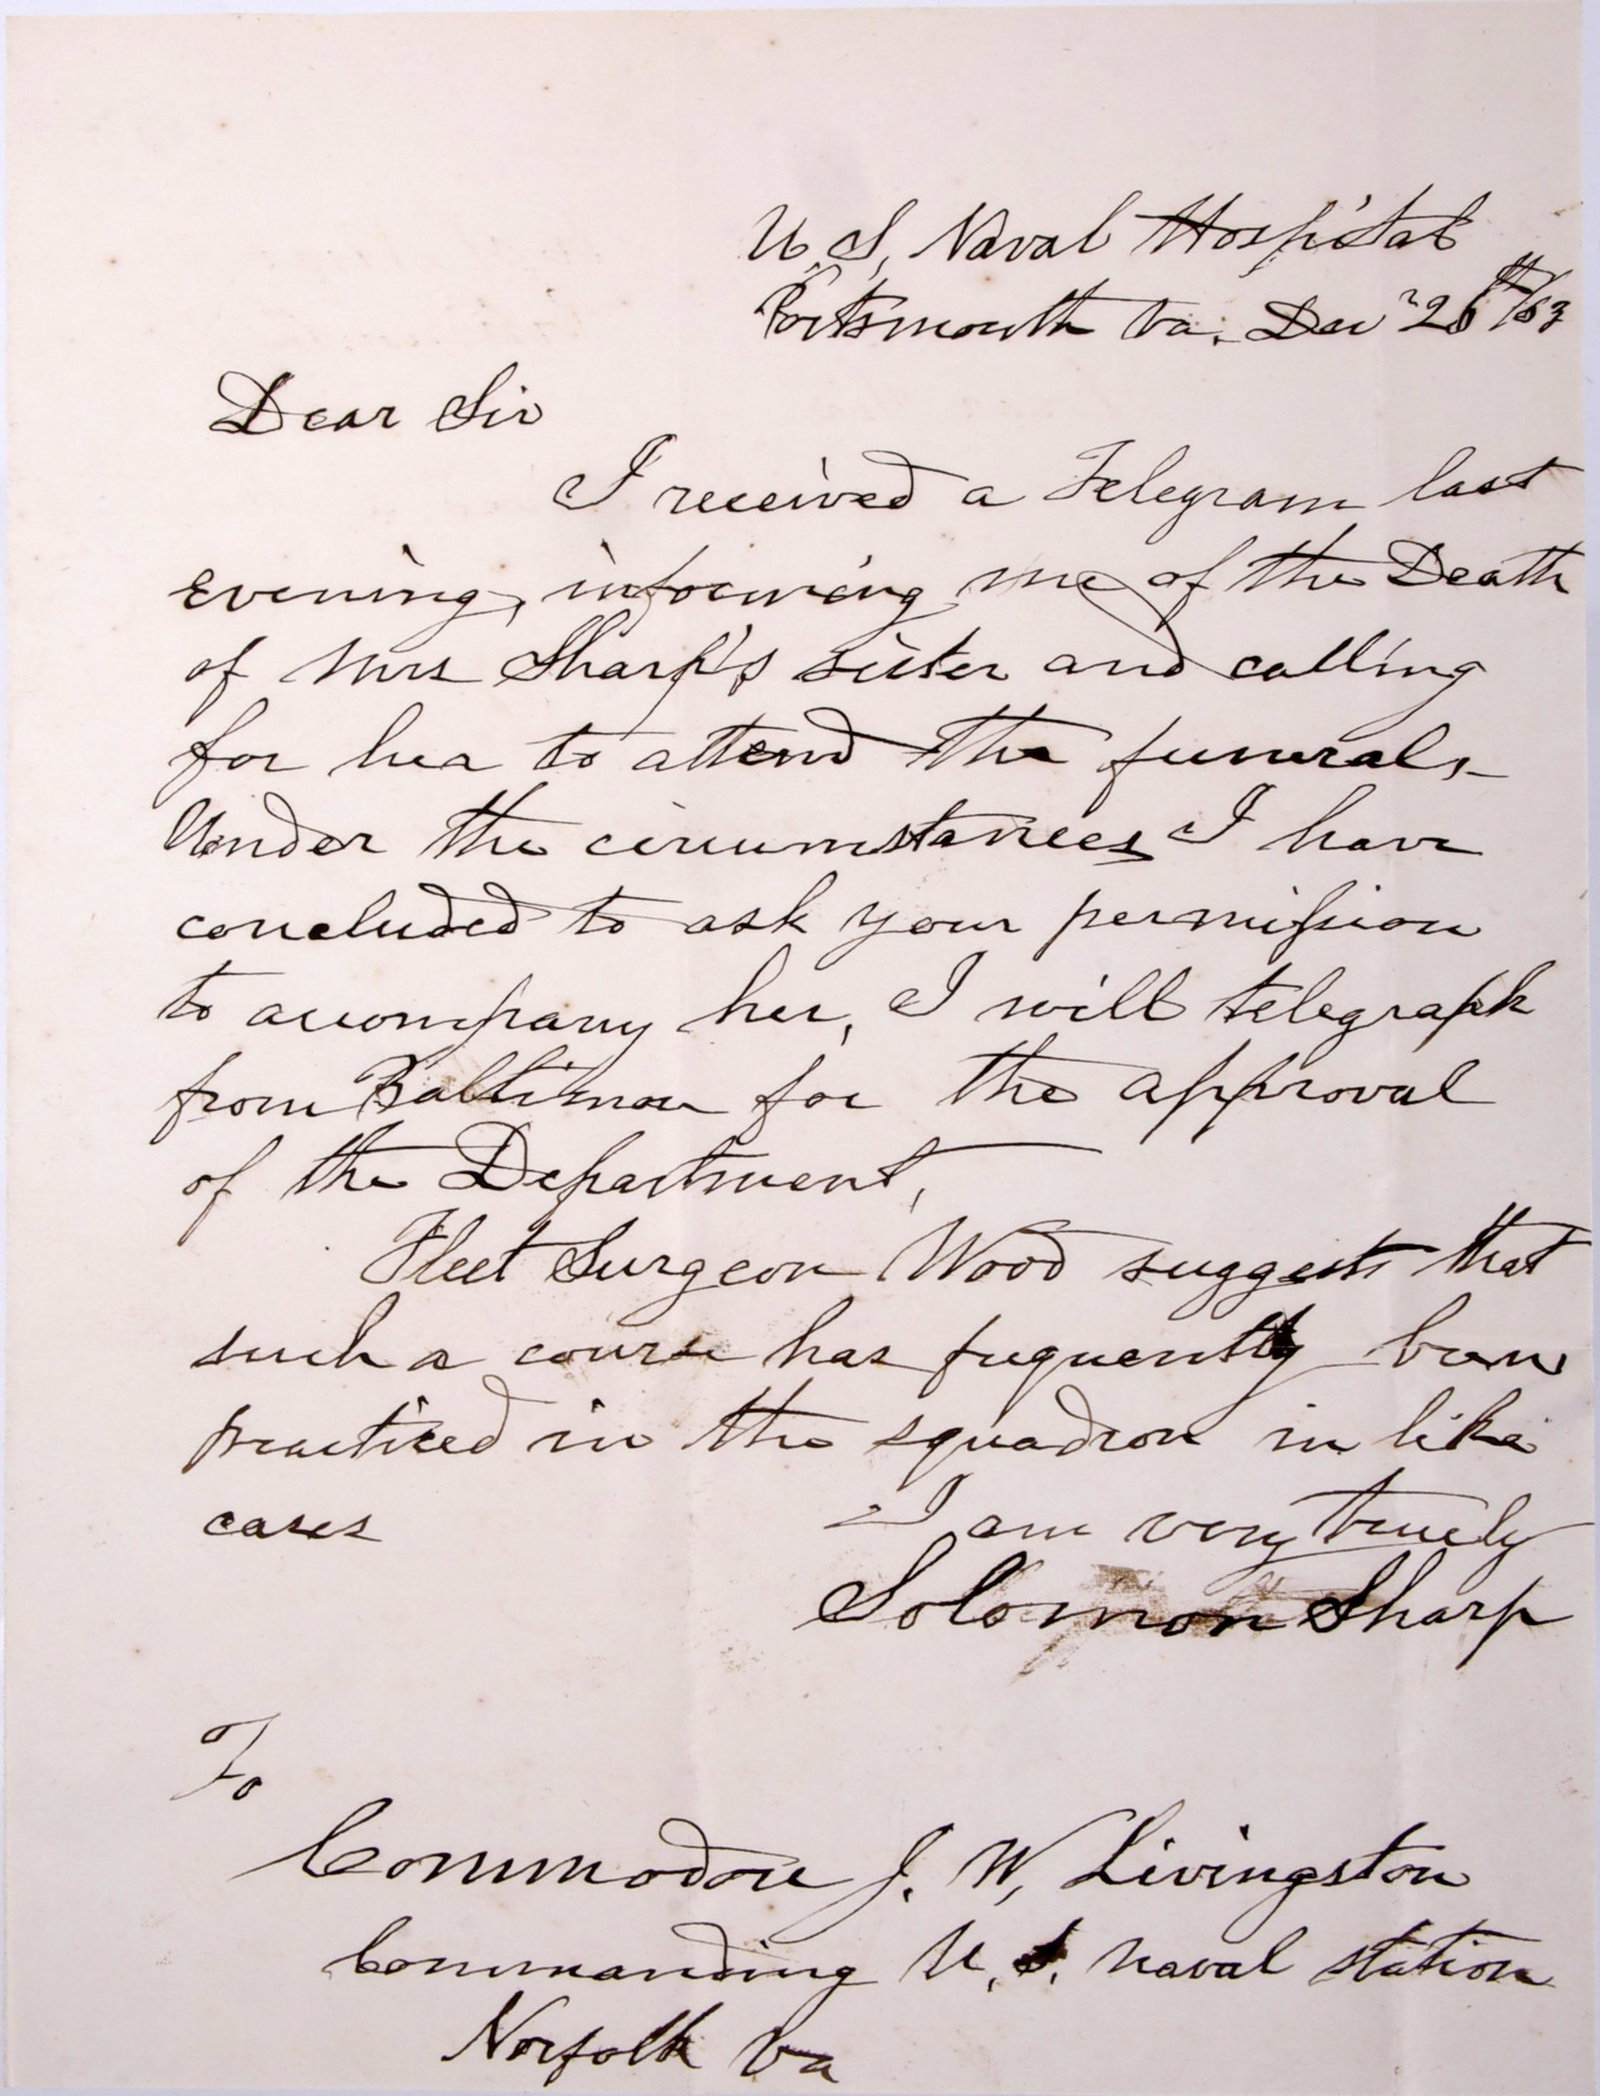 U.S. Naval Hospital
Portsmouth Va. Dec 26th/63
Dear Sir
I received a Telegram last
evening, informing me of the Death
of Mrs Sharp's sister and calling
for her to attend the funeral.
Under the circumstances I have
concluded to ask your permission
to accompany her, I will telegraph
from Baltimore for the approval
of the Department,
Fleet Surgeon Wood suggests that
such a course has frequently been
practiced in the squadron in like
cases
I am very truely
Solomon Sharp
To
Commodore J. W. Livingston
Commanding U.S. Naval station
Norfolk Va